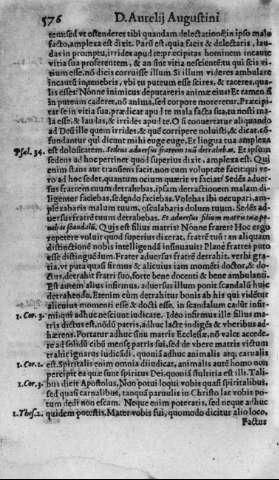 576 D. Aurelij Augustini
temus: ed ve ostenderet tibi quandam delectationem in ipso malo
facto, amplexa est dixit. Parū est quia facis & delectaris, lau-
das in promptu, irrides apud te
vitia sua proferentem, & an sint vitia nescientē
tium esse. nō dicis corruisse illum. Si illum videres ambulare
incautū ingenebris, vbi tu puteum esse scires, & taceres, qua-
lis esses? Nonne inimicus deputareris animæ eius? Et tamen si
in puteum caderet, nō anima, sed corpore moreretur. Præcipi-
tat se in vitia sua, prædicat apud te mala facta sua
la esse, & laudas, & irrides apud te. O si conuertatur aliquando
ad Deū ille quem irrides, & quē corripere noluisti, & dicat. cō-
fundantur qui dicunt mihi euge euge. Et lingua tua amplexa
Psal. 34. est dolositatem. Sedens aduersus fratrem tuū detrahebas. Et ipsum
sedens ad hoc pertinet quod superius dixit, amplexa est. Qui
enim stans aut transiens facit, non cum voluptate facit: qui ve-
rò ad hoc sedet, quantum ocium quærit vt faciat? Sedēs aduer-
sus fratrem tuum detrahebas. ipsam detractionem malam di-
ligenter faciebas, sedendo faciebas. Volebas ibi occupari, am-
plexabaris malum tuum, osculabaris dolum tuum. Sedēs ad-
uersus fratrē tuum detrahebas. Et aduersus filium matris tuæ po-
nebas scandalū. Quis est filius matris? Nonne frater? Hoc ergo
repetere voluit quod superius dixerat, fratrē tuū: an aliquam
distinctionē nobis intelligendā insinuauit? Planè fratres puto
esse distinguēdum. Frater aduersus fratrē detrahit. verbi gra-
tia, vt puta quasi firmus & alicuius iam momēti doctor, &
doctus, detrahit fratri suo, fortè bene docenti & bene ambulanti.
Est autem alius infirmus, aduersus illum ponit scandalū huic
detrahendo. Etenim cùm detrahitur bonis ab his qui videntur
alicuius momenti esse & docti esse, in scandalum cadūt infir-
1. Cor. 3. mi, qui adhuc nesciunt iudicare. Ideo infirmus ille filius ma-
tris dictus est, nōdū patris, adhuc lacte indigēs & vberibus ad-
hærens. Portatur adhuc sinu matris Ecclesiæ, nō valet accede-
re ad solidū cibū mensæ patris sui, sed de vbere matris victum
trahit ignarus iudicādi. quoniā adhuc animalis atq; carnalis
1. Cor. 2. est. Spiritalis enim omnia diiudicat, animalis autē homo non
percipit ea quæ sunt Spiritus Dei. quoniā stultitia est illi. Tali-
1. Cor. 3. bus dicit Apostolus, Non potui loqui vobis quasi spiritalibus,
sed quasi carnalibus, tanquā paruulis in Christo lac vobis po-
tum dedi non escam. Neque enim poteratis, sed neque adhuc
1. Thes. 2. quidem potestis. Mater vobis fui, quomodo dicitur alio loco,
Factus